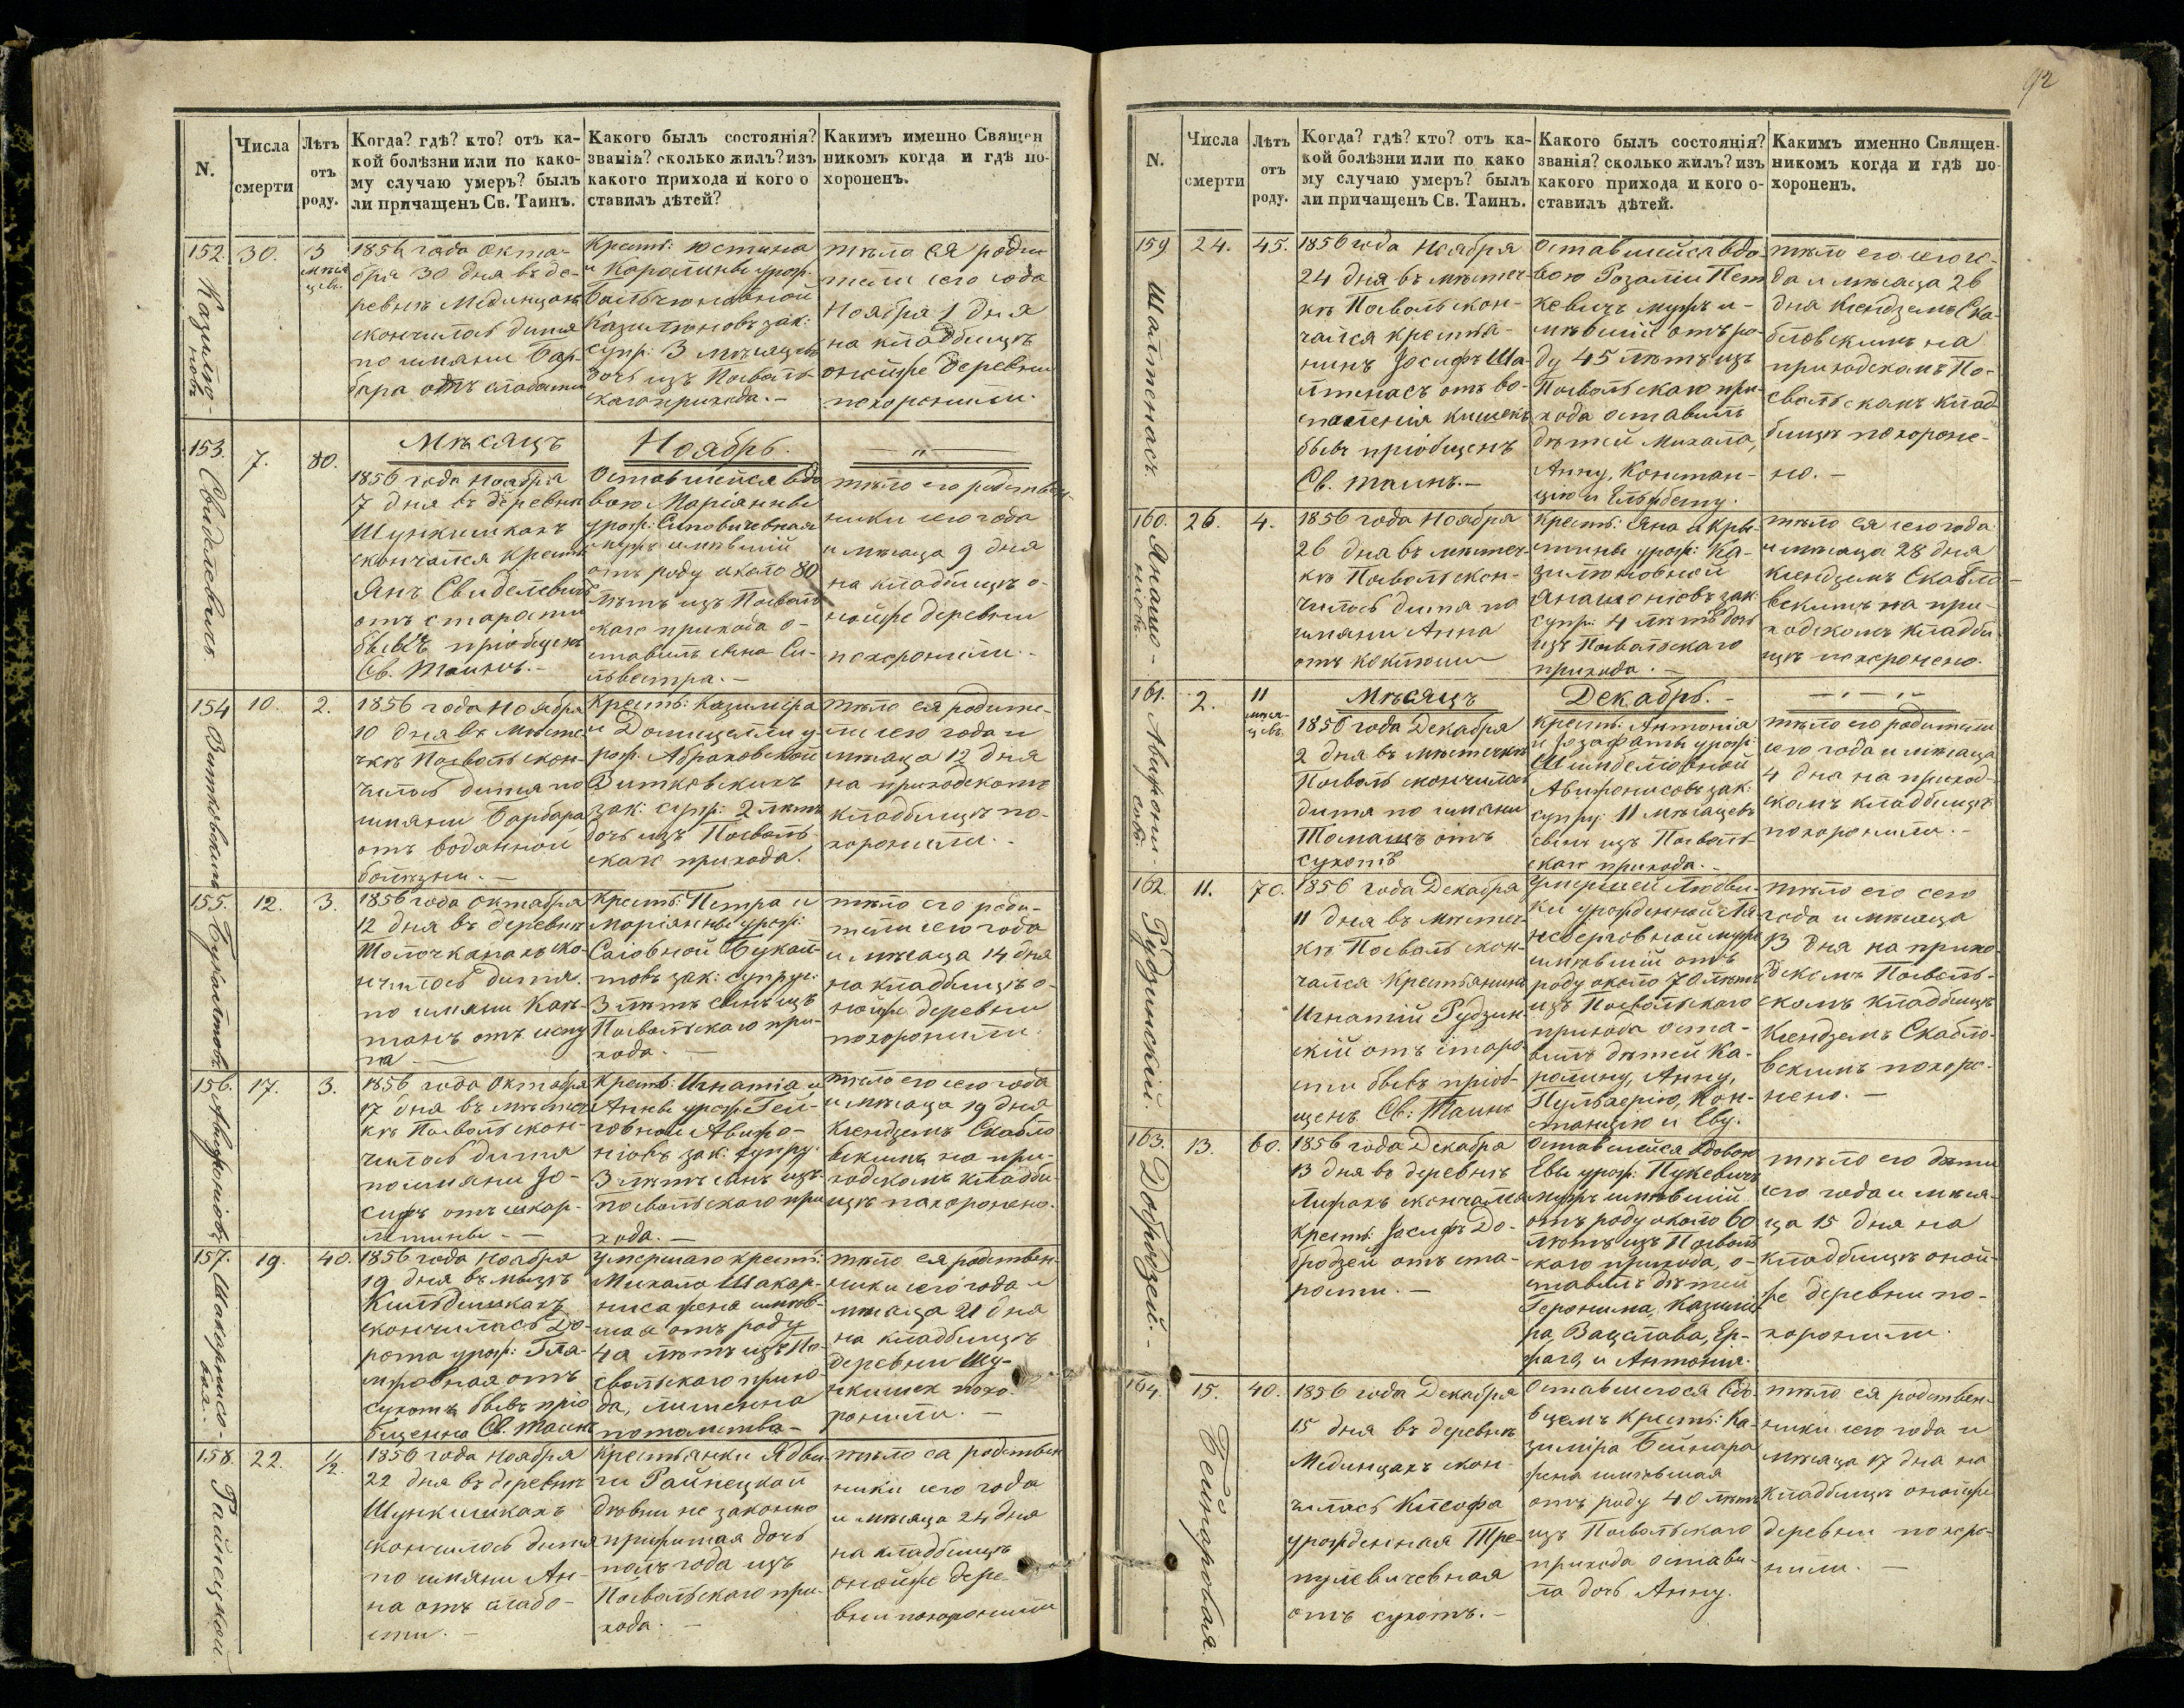 92
N.
Числа смерти
Лѣтъ отъ роду.
Когда? гдѣ? кто? отъ ка-
кой болѣзни или по како-
му случаю умеръ? былъ
ли причащенъ Св. Таинъ.
Какого былъ состоянія?
званія? сколько жилъ? изъ
какого прихода и кого о
ставилъ дѣтей?
Какимъ именно Священ
никомъ когда и гдѣ по-
хороненъ.
152.
30.
3
мѣся
цевъ.
1856 года Октя-
бря 30 дня въ де-
ревнѣ Мединцахъ
скончилось дитя
по имяни Бар-
бара отъ слабости
Крест: Юстина
и Каролины урож:
Казилюновъ зак:
супр: 3 мѣсяцевъ
дочь изъ Посволь
скаго прихода.-
тѣло ея роди
тели сего года
Ноября 1 дня
на кладбищѣ
онойже деревни
похоронили.
153.
Свиделевичъ.
7.
80.
Мѣсяцъ
Ноябрь.
1856 года Ноября
7 дня въ деревнѣ
Шункишкахъ
скончался крест:
Янъ Свиделевичъ
отъ старости
бывъ пріобщенъ
Св. Таинъ.-
Оставшейся вдо
вою Маріанны
мужъ имѣвшій
отъ роду около 80
лѣтъ изъ Посволь
скаго прихода о-
ставилъ сына Си-
львестра.-
тѣло его родствен-
ники сего года
и мѣсяца 9 дня
на кладбищѣ о-
нойже деревни
похоронили.-
154
Витковскихъ
10.
2.
1856 года Ноября
10 дня въ мѣсте
чкѣ Посволь скон-
чилось дитя по
имяни Барбара
отъ водянной
болѣзни.-
Крест: Казиміра
и Доміцелли у-
рож. Абраховской
Витковскихъ
зак: супр: 2 лѣтъ
дочь изъ Посволь-
скаго прихода.
тѣло ея родите-
ли сего года и
мѣсяца 12 дня
на приходскомъ
кладбищѣ по-
хоронили.-
155.
12.
3.
1856 года Октября
12 дня въ деревнѣ
нчилось дитя
по имяни Каѣ-
танъ отъ испу
га —
Крест: Петра и
Маріянны урож:
товъ зак: супруг:
3 лѣтъ сынъ изъ
Посвольскаго при-
хода. —
тѣло его роди-
тели сего года
и мѣсяца 14 дня
на кладбищѣ о-
нойже деревни
похоронили.
156.
17.
3.
1856 года Октября
17 дня въ мѣстеч
кѣ Посволь скон-
чилось дитя
по имяни Іо-
сифъ отъ шкар-
латины. —
Крест: Игнатія и
Анны урож: Гей-
ніовъ зак: супру:
3 лѣтъ сынъ изъ
Посвольскаго при
хода.—
тѣло его сего года
и мѣсяца 19 дня
Ксендземъ Скабло
вскимъ на при-
ходскомъ кладби-
щѣ похоронено.
157.
19.
40.
1856 года Ноября
19 дня въ мызѣ
скончилась До-
сухотъ бывъ пріо
бщенна Св. Таинъ
Умершаго крест:
Михала Шакар-
ниса жена имѣв-
шая отъ роду
40 лѣтъ изъ По-
свольскаго прихо-
да, лишенна
потомства.-
тѣло ея родствен-
ники сего года и
мѣсяца 21 дня
на кладбищѣ
деревни Шу-
нкишек похо-
ронили. —
158.
Райнецкой.
22.
½.
1856 года Ноября
22 дня въ деревнѣ
Шункишкахъ
скончилось дитя
по имяни Ан-
на отъ слабо-
сти. —
Крестьянки Ядви
ги Райнецкой
дѣвки не законно
прижитая дочь
полъ года изъ
Посвольскаго при-
хода. —
тѣло ея родствен
ники сего года
и мѣсяца 24 дня
на кладбищѣ
онойже дере-
вни похоронили
N.
Числа смерти
Лѣтъ отъ роду.
Когда? гдѣ? кто? отъ ка-
кой болѣзни или по како
му случаю умеръ? былъ
ли причащенъ Св. Таинъ.
Какого былъ состоянія?
званія? сколько жилъ? изъ
какого прихода и кого о-
ставилъ дѣтей.
Какимъ именно Священ-
никомъ когда и гдѣ по
хороненъ.
159
Шалтенасъ
24.
45.
1856 года Ноября
24 дня въ мѣстеч-
кѣ Посволь скон-
чался крестья-
нинъ Іосифъ Ша-
лтенасъ отъ во-
спаленія кишекъ
бывъ пріобщенъ
Св. Таинъ.—
Оставшейся вдо-
вою Розаліи Пет
кевичъ мужъ и-
мѣвшій отъ ро-
ду 45 лѣтъ изъ
Посвольскаго при-
хода оставилъ
дѣтей Михала,
Анну, Констан-
цію и Ельжбету.
тѣло его сего го-
да и мѣсяца 26
дня Ксендземъ Ска-
бловскимъ на
приходскомъ По-
свольскомъ клад-
бищѣ похороне-
но.—
160.
26.
4.
1856 года Ноября
26 дня въ мѣстеч-
кѣ Посволь скон-
чилось дитя по
имяни Анна
отъ коклюши
Крест: Яна и Кры-
стины урож: Ка-
зилюновной
супр: 4 лѣтъ дочь
изъ Посвольскаго
прихода.—
тѣло ея сего года
и мѣсяца 28 дня
Ксендземъ Скабло-
вскимъ на при-
ходскомъ кладби
щѣ похоронено.
161.
2.
11
мѣся-
цевъ
Мѣсяцъ
Декабрь.-
1856 года Декабря
2 дня въ мѣстечкѣ
Посволь скончилось
дитя по имяни
Томашъ отъ
сухотъ
Крест: Антонія
и Іозафаты урож:
супру: 11 мѣсяцевъ
сынъ изъ Посволь-
скаго прихода.-
тѣло его родители
сего года и мѣсяца
4 дня на приход-
скомъ кладбищѣ
похоронили.-
162.
Рудзинскій.
11.
70.
1856 года Декабря
11 дня въ мѣстеч-
кѣ Посволь скон-
чался Крестьянинъ
Игнатій Рудзин-
скій отъ старо
сти бывъ пріоб-
щенъ Св: Таинъ
Умершей Людви-
имѣвшій отъ
роду около 70 лѣтъ
изъ Посвольскаго
прихода оста-
вилъ дѣтей Ка-
ролину, Анну,
Пульхерію, Кон-
станцію и Еву.
тѣло его сего
года и мѣсяца
13 дня на прихо-
дскомъ Посволь-
скомъ кладбищѣ
Ксендземъ Скабло-
вскимъ похоро-
нено.—
163.
Добродзей.-
13.
60.
1856 года Декабря
13 дня въ деревнѣ
Лифахъ скончался
крест: Іосифъ До-
бродзей отъ ста-
рости.—
Оставшейся вдовою
Евы урож: Пукевичъ
мужъ имѣвшій
отъ роду около 60
лѣтъ изъ Посволь
скаго прихода, о-
ставилъ дѣтей
Геронима, Казимі-
ра, Вацлава, Ер-
и Антонія.
тѣло его дѣти
сего года и мѣся-
ца 15 дня на
кладбищѣ оной-
же деревни по-
хоронили.
164.
Бейнаровая.
15.
40.
1856 года Декабря
15 дня въ деревнѣ
Мединцахъ скон-
чилась Клеофа
урожденная Тре-
чулевичевная
отъ сухотъ.—
Оставшегося вдо-
вцемъ Крест: Ка-
зиміра Бейнара
жена имѣвшая
отъ роду 40 лѣтъ
изъ Посвольскаго
прихода остави-
ла дочь Анну.
тѣло ея родствен-
ники сего года и
мѣсяца 17 дня на
кладбищѣ онойже
деревни похоро-
нили. —